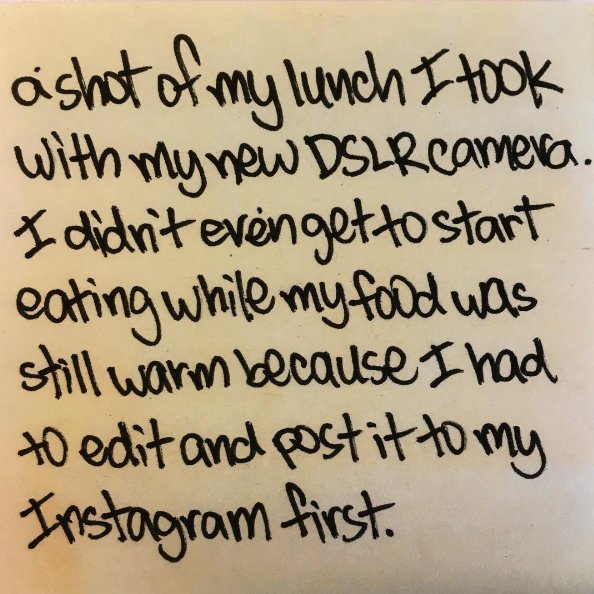 a shot of my lunch I took
with my new DSLR camera.
I didn't even get to start
eating while my food was
still warm because I had
to edit and post it to my
Instagram first.